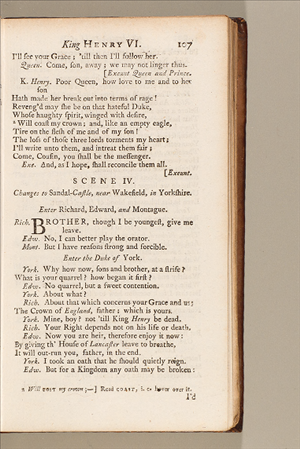 King HENRY VI. 107
I'll ſee your Grace; 'till then I'll follow her.
Queen. Come, ſon, away; we may not linger thus.
[Exeunt Queen and Prince.
K. Henry. Poor Queen, how love to me and to her
ſon
Hath made her break out into terms of rage!
Reveng'd may ſhe be on that hateful Duke,
Whoſe haughty ſpirit, winged with deſire,
ª Will coaſt my crown; and, like an empty eagle,
Tire on the fleſh of me and of my ſon!
The loſs of thoſe three lords torments my heart;
I'll write unto them, and intreat them fair;
Come, Couſin, you ſhall be the meſſenger.
Exe. And, as I hope, ſhall reconcile them all.
[Exeunt.
SCENE IV.
Changes to Sandal-Caſtle, near Wakefield, in Yorkſhire.
Enter Richard, Edward, and Montague.
Rich. BROTHER, though I be youngeſt, give me
leave.
Edw. No, I can better play the orator.
Mont. But I have reaſons ſtrong and forcible.
Enter the Duke of York.
York. Why how now, ſons and brother, at a ſtrife?
What is your quarrel? how began it firſt?
Edw. No quarrel, but a ſweet contention.
York. About what?
Rich. About that which concerns your Grace and us;
The Crown of England, father; which is yours.
York. Mine, boy? not 'till King Henry be dead.
Rich. Your Right depends not on his life or death.
Edw. Now you are heir, therefore enjoy it now:
By giving th' Houſe of Lancaſter leave to breathe,
It will out-run you, father, in the end.
York. I took an oath that he ſhould quietly reign.
Edw. But for a Kingdom any oath may be broken:
a Will COST my crown;—] Read COAST, i. e. hover over it.
I'd